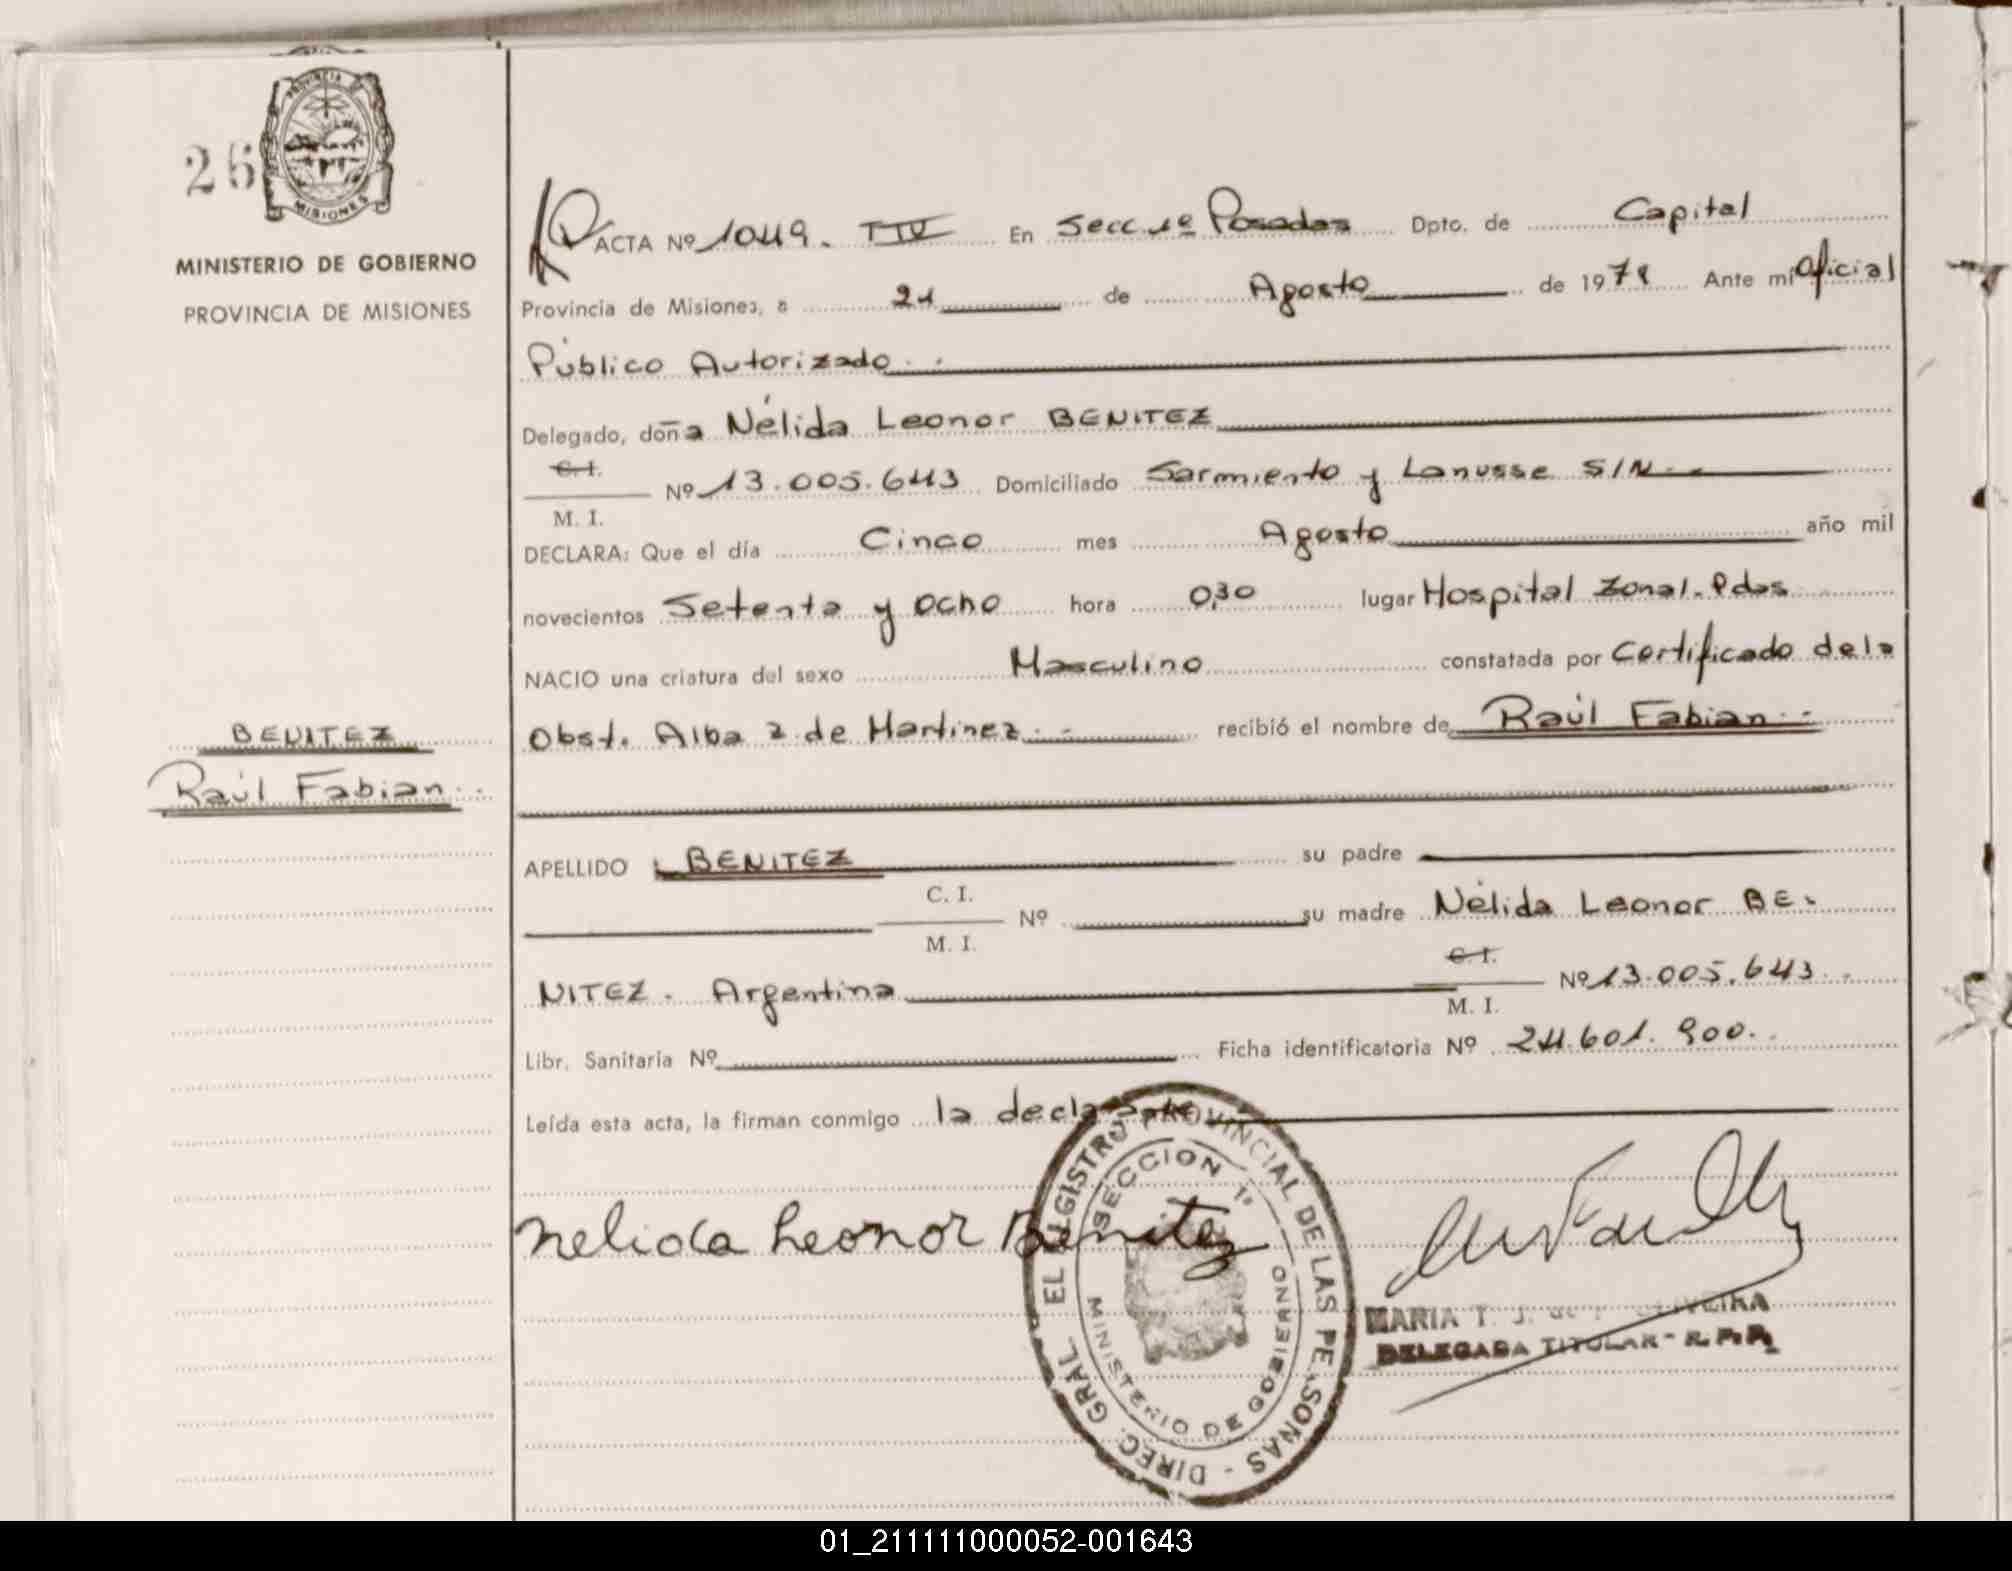 PROVINCIA DE
MISIONES
26
MINISTERIO DE GOBIERNO
PROVINCIA DE MISIONES
ACTA Nº 1049. TIV En Secc 1º Posadas Dpto. de Capital
Provincia de Misiones, a 21 de Agosto de 1978 Ante mí Oficial
Público Autorizado
Delegado, doña Nélida Leonor BENITEZ
C. I.
M. I. Nº 13.005.643 Domiciliado Sarmiento y Lanusse S/N
DECLARA: Que el día Cinco mes Agosto año mil
novecientos Setenta y ocho hora 0,30 lugar Hospital Zonal. Pdas
NACIO una criatura del sexo Masculino constatada por Certificado de la
Obst. Alba Z de Martinez recibió el nombre de Raúl Fabian
BENITEZ
Raúl Fabian
APELLIDO BENITEZ su padre
C. I.
M. I. Nº su madre Nélida Leonor BE-
NITEZ. Argentina C. I.
M. I. Nº 13.005.643
Libr. Sanitaria Nº Ficha identificatoria Nº 24.601.900
Leída esta acta, la firman conmigo la declarante
Nelida Leonor Benitez
DIREC. GRAL. EL REGISTRO PROVINCIAL DE LAS PERSONAS
SECCION 1º
MINISTERIO DE GOBIERNO
MARIA T. J. de
DELEGADA TITULAR - R. P. P.
01_211111000052-001643